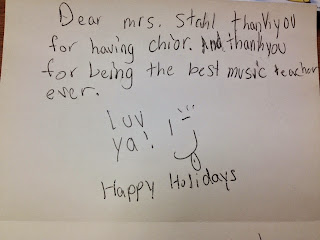 Dear mrs. Stahl thankyou
for having chior. And thankyou
for being the best music teacher
ever.
luv
ya!
Happy Holidays